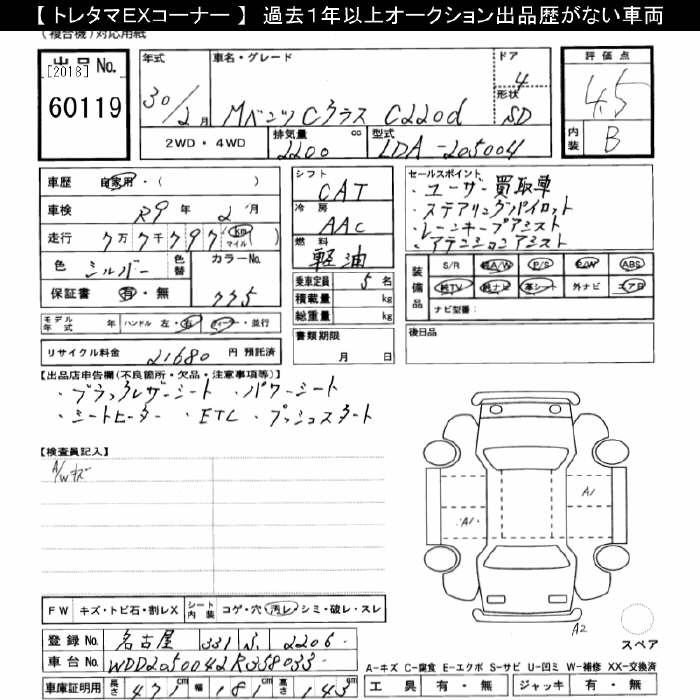 【 トレタマEXコーナー 】 過去1年以上オークション出品歴がない車両
(複合機)対応用紙
出品 No. [2018]
60119
年式 30/2月
車名・グレード Mベンツ Cクラス C220d
ドア 4
形状 SD
評価点 4.5
内装 B
2WD・4WD
排気量 2200 cc
型式 LDA-205004
車歴 自家用・( )
車検 R9年 2月
走行 7万7千797 (km マイル)
色 シルバー 色替 カラーNo. 775
保証書 有・無
シフト CAT
冷房 AAC
燃料 軽油
乗車定員 5名
積載量 kg
総重量 kg
書類期限 月 日
セールスポイント
・ユーザー買取車
・ステアリングパイロット
・レーンキープアシスト
・アテンションアシスト
装備品 S/R 純A/W P/S P/W ABS
純TV 純ナビ 革シート 外ナビ エアB
ナビ型番:
後日品
モデル年式 年 ハンドル 左・右 ディーラー・並行
リサイクル料金 21680 円 預託済
【出品店申告欄(不良箇所・欠品・注意事項等)】
・ブラックレザーシート ・パワーシート
・シートヒーター ・ETC ・プッシュスタート
【検査員記入】
A/Wキズ
A1
A1
A2
スペア
FW キズ・トビ石・割レX シート内装 コゲ・穴・汚レ・シミ・破レ・スレ
登録 No. 名古屋 331 ふ 2206
車台 No. WDD2050042R358033
車庫証明用 長さ 471 幅 181 高さ 143
A-キズ C-腐食 E-エクボ S-サビ U-凹ミ W-補修 XX-交換済
工具 有・無 ジャッキ 有・無